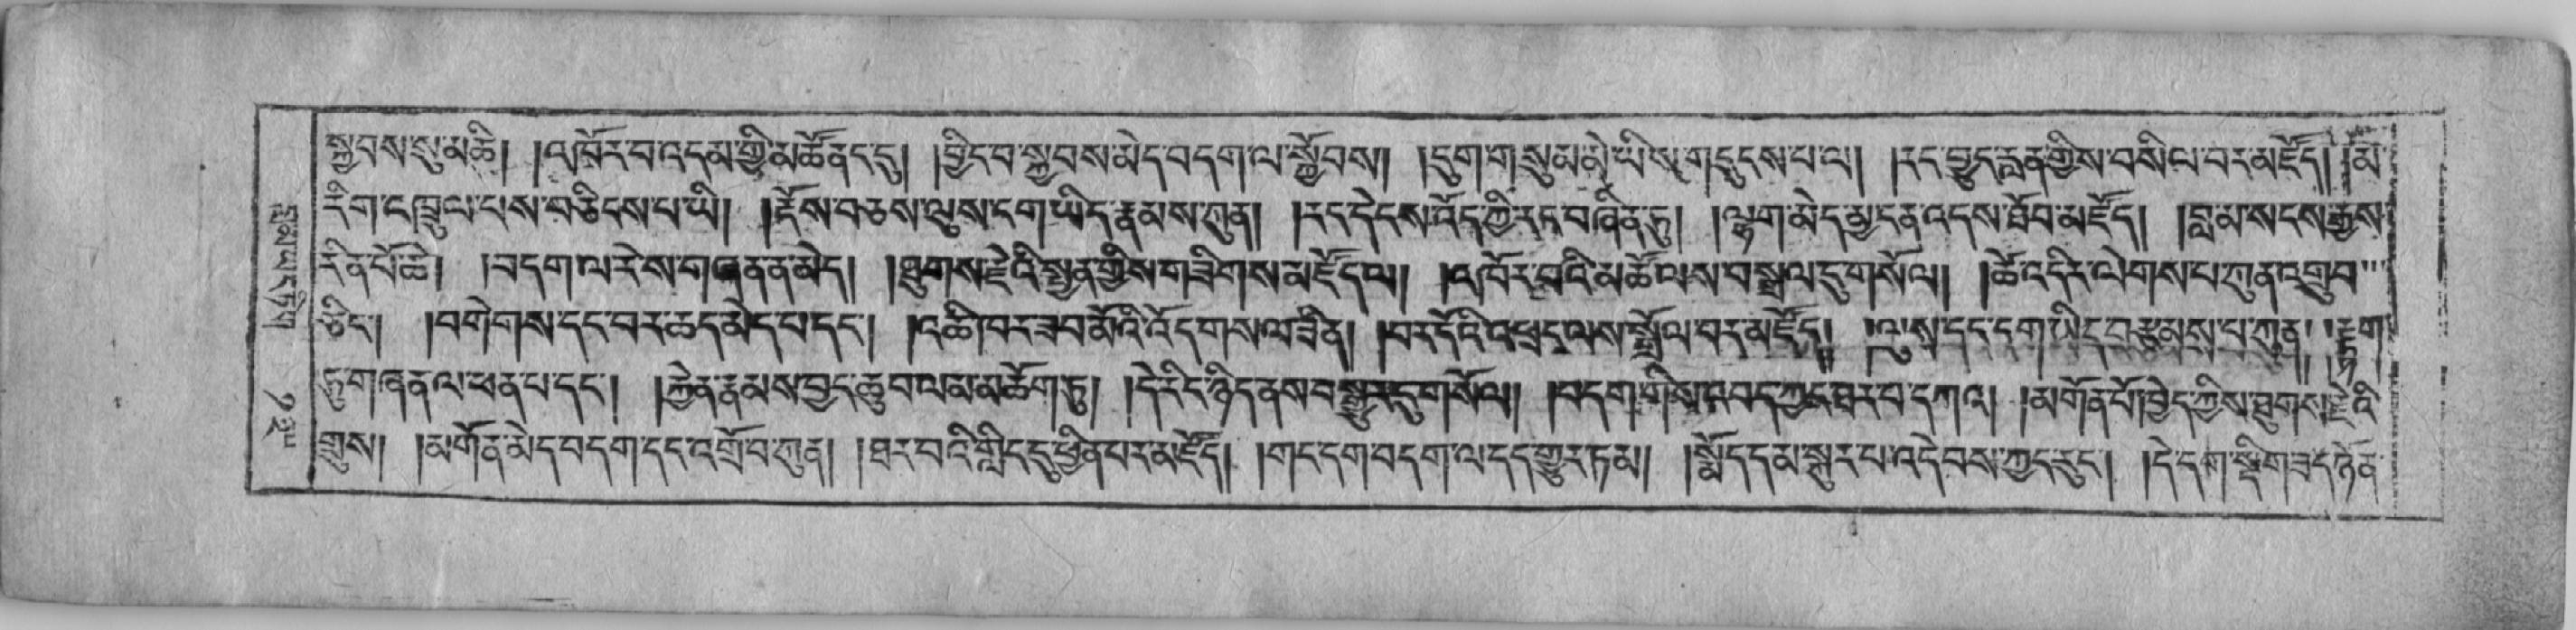 སྐྱབས་སུ་མཆི། །འཁོར་བ་འདམ་གྱི་མཚོ་ནང་དུ། །བྱིང་བ་སྐྱབས་མེད་བདག་ལ་སྐྱོབས། །དུག་གསུམ་མེ་ཡིས་གདུངས་པ་ལ། །རང་བྱུང་རླན་གྱིས་བསིལ་བར་མཛོད། །མ་
རིག་དྲྭ་བས་བཅིངས་པ་ཡི། །ངོས་བཅས་ལུས་ངག་ཡིད་རྣམས་ཀུན། །རང་དེངས་འོད་ཀྱི་རང་བཞིན་ཏུ། །ལྷག་མེད་མྱ་ངན་འདས་ཐོབ་མཛོད། །བླ་མ་སངས་རྒྱས་
རིན་པོ་ཆེ། །བདག་ལ་རེས་གཞན་ན་མེད། །ཐུགས་རྗེའི་སྤྱན་གྱིས་གཟིགས་མཛོད་ལ། །འཁོར་བའི་མཚོ་ལས་བསྒྲལ་དུ་གསོལ། །ཚེ་འདིར་ལེགས་པ་ཀུན་འགྲུབ་
ཅིང་། །བགེགས་དང་བར་ཆད་མེད་པ་དང་། །འཆི་བར་ཟབ་མོའི་འོད་གསལ་ཟིན། །བར་དོའི་འཕྲང་ལས་སྒྲོལ་བར་མཛོད། །ལུས་དང་ངག་ཡིད་བརྩམས་པ་ཀུན། །རྟག་
ཏུ་གཞན་ལ་ཕན་པ་དང་། །རྐྱེན་རྣམས་བྱང་ཆུབ་ལམ་མཆོག་ཏུ། །དེ་རིང་ཉིད་ནས་བསྒྱུར་དུ་གསོལ། །བདག་གིས་འབད་ཀྱང་ཐར་བ་དཀའ། །མགོན་པོ་ཁྱེད་ཀྱིས་ཐུགས་རྗེའི་
གྲུས། །མགོན་མེད་བདག་དང་འགྲོ་བ་ཀུན། །ཐར་བའི་གླིང་དུ་ཕྱིན་པར་མཛོད། །གང་དག་བདག་ལ་དད་གྱུར་ཏམ། །སྨོད་དམ་སྐུར་པ་འདེབས་ཀྱང་རུང་། །དེ་དག་སྡིག་ཟད་ཉོན་